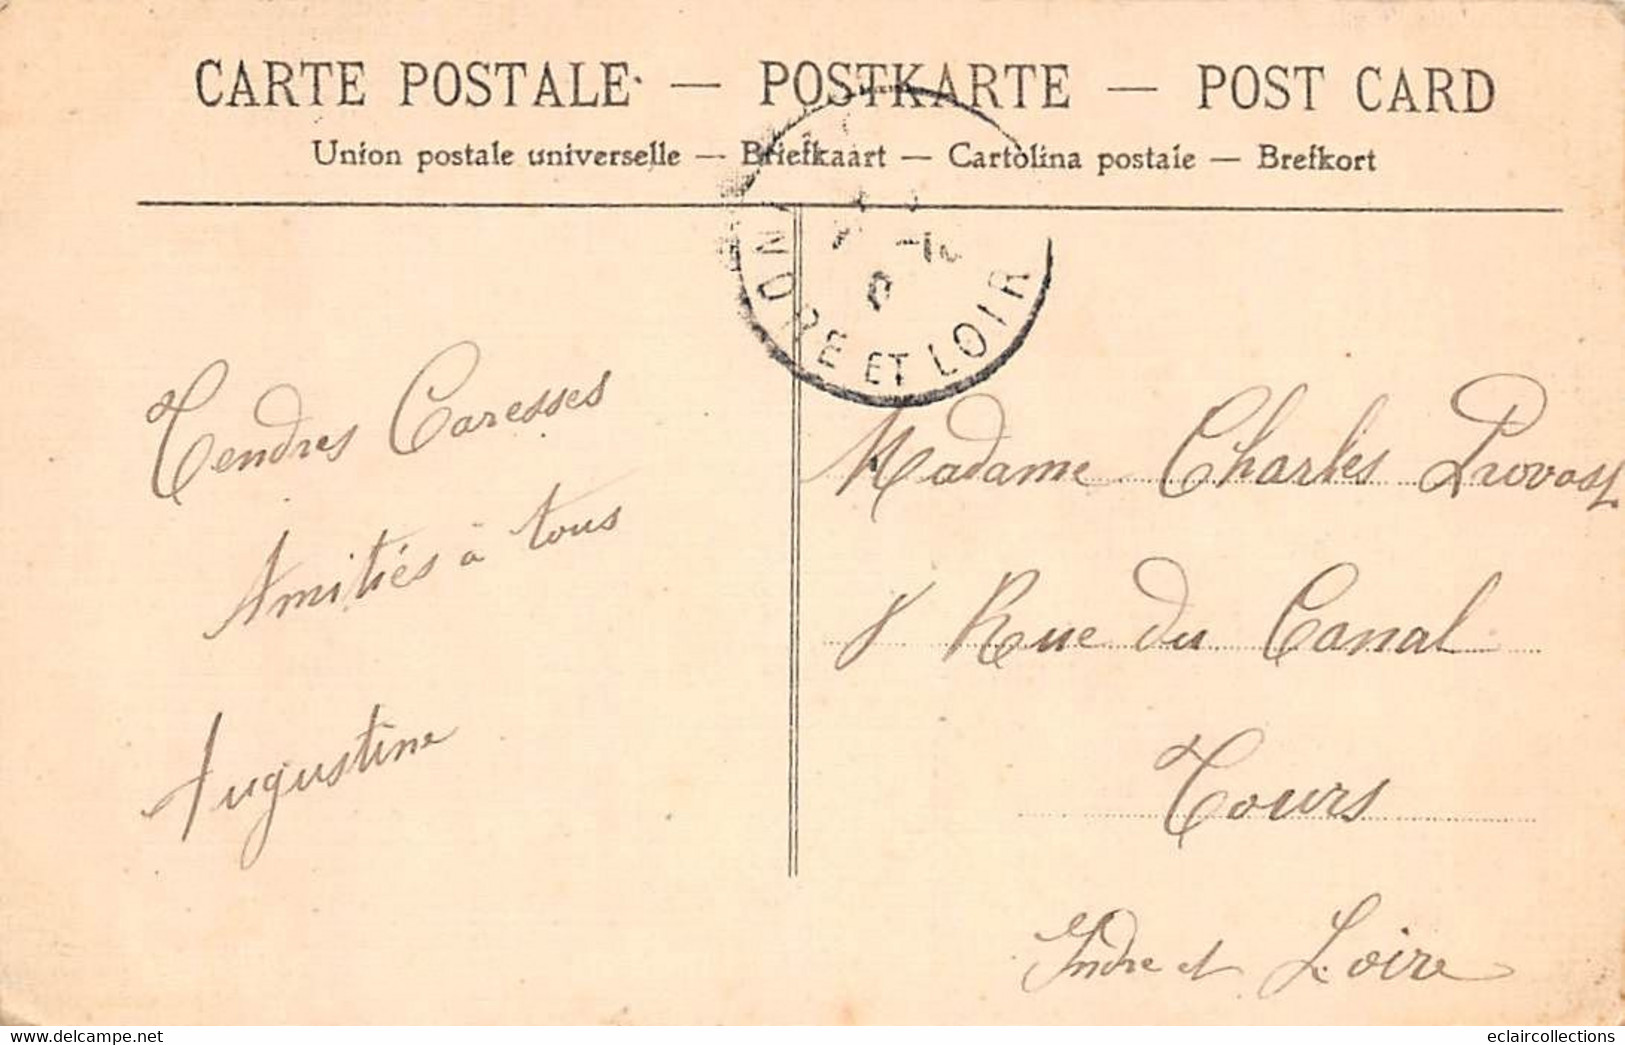 CARTE POSTALE — POSTKARTE — POST CARD
Union postale universelle — Briefkaart — Cartolina postale — Brefkort
INDRE ET LOIR
Tendres Caresses
Amitiés à tous
Augustine
Madame Charles Provost
8 Rue du Canal
Tours
Indre et Loire
www.delcampe.net
eclaircollections